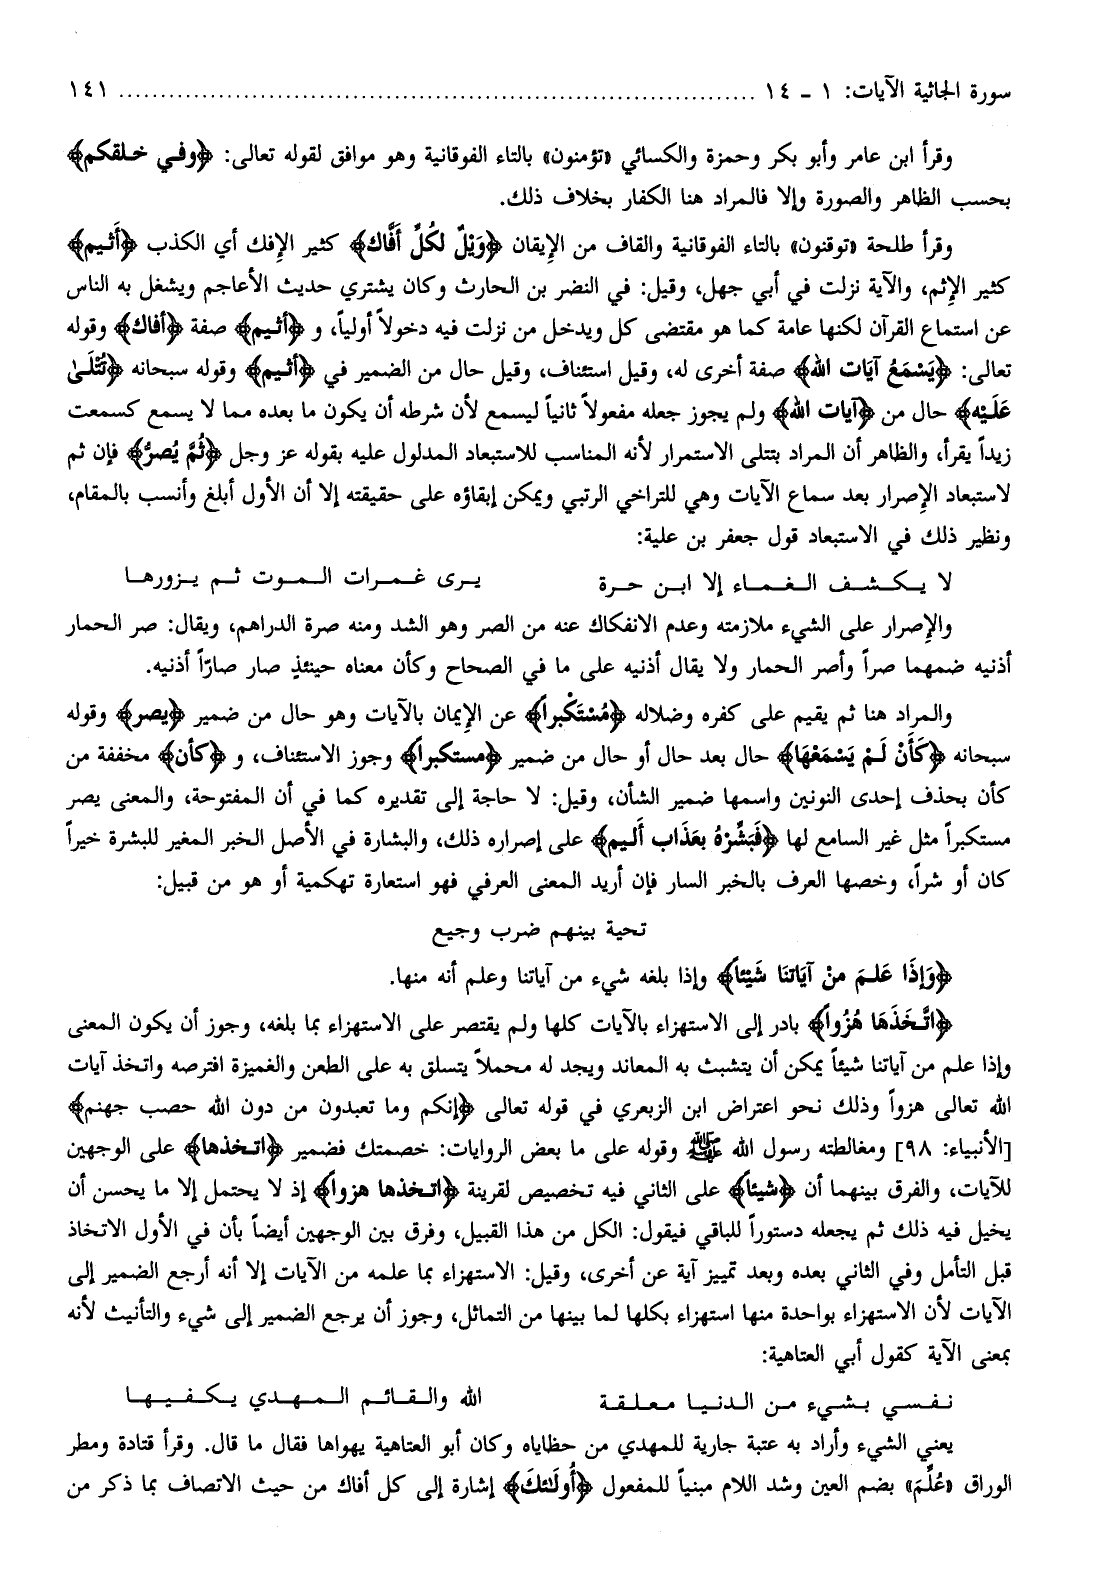 سورة الجاثية الآيات: ١ - ١٤ ................................................................ ١٤١
وقرأ ابن عامر وأبو بكر وحمزة والكسائي «تؤمنون» بالتاء الفوقانية وهو موافق لقوله تعالى: ﴿وفي خلقكم﴾
بحسب الظاهر والصورة وإلا فالمراد هنا الكفار بخلاف ذلك.
وقرأ طلحة «توقنون» بالتاء الفوقانية والقاف من الإيقان ﴿وَيْلٌ لكُلِّ أَفَّاك﴾ كثير الإفك أي الكذب ﴿أَثيم﴾
كثير الإثم، والآية نزلت في أبي جهل، وقيل: في النضر بن الحارث وكان يشتري حديث الأعاجم ويشغل به الناس
عن استماع القرآن لكنها عامة كما هو مقتضى كل ويدخل من نزلت فيه دخولاً أولياً، و ﴿أثيم﴾ صفة ﴿أفاك﴾ وقوله
تعالى: ﴿يَسْمَعُ آيَات الله﴾ صفة أخرى له، وقيل استئناف، وقيل حال من الضمير في ﴿أثيم﴾ وقوله سبحانه ﴿تُتْلَىٰ
عَلَيْه﴾ حال من ﴿آيات الله﴾ ولم يجوز جعله مفعولاً ثانياً ليسمع لأن شرطه أن يكون ما بعده مما لا يسمع كسمعت
زيداً يقرأ، والظاهر أن المراد بتتلى الاستمرار لأنه المناسب للاستبعاد المدلول عليه بقوله عز وجل ﴿ثُمَّ يُصرُّ﴾ فإن ثم
لاستبعاد الإصرار بعد سماع الآيات وهي للتراخي الرتبي ويمكن إبقاؤه على حقيقته إلا أن الأول أبلغ وأنسب بالمقام،
ونظير ذلك في الاستبعاد قول جعفر بن علية:
لا يكشف الغماء إلا ابن حرة يرى غمرات الموت ثم يزورها
والإصرار على الشيء ملازمته وعدم الانفكاك عنه من الصر وهو الشد ومنه صرة الدراهم، ويقال: صر الحمار
أذنيه ضمهما صراً وأصر الحمار ولا يقال أذنيه على ما في الصحاح وكأن معناه حينئذٍ صار صارّاً أذنيه.
والمراد هنا ثم يقيم على كفره وضلاله ﴿مُسْتَكْبراً﴾ عن الإيمان بالآيات وهو حال من ضمير ﴿يصر﴾ وقوله
سبحانه ﴿كَأَنْ لَمْ يَسْمَعْهَا﴾ حال بعد حال أو حال من ضمير ﴿مستكبراً﴾ وجوز الاستئناف، و ﴿كأن﴾ مخففة من
كأن بحذف إحدى النونين واسمها ضمير الشأن، وقيل: لا حاجة إلى تقديره كما في أن المفتوحة، والمعنى يصر
مستكبراً مثل غير السامع لها ﴿فَبَشِّرْهُ بعَذَاب أَليم﴾ على إصراره ذلك، والبشارة في الأصل الخبر المغير للبشرة خيراً
كان أو شراً، وخصها العرف بالخبر السار فإن أريد المعنى العرفي فهو استعارة تهكمية أو هو من قبيل:
تحية بينهم ضرب وجيع
﴿وَإذَا عَلمَ منْ آيَاتنَا شَيْئاً﴾ وإذا بلغه شيء من آياتنا وعلم أنه منها.
﴿اتَّخَذَهَا هُزُواً﴾ بادر إلى الاستهزاء بالآيات كلها ولم يقتصر على الاستهزاء بما بلغه، وجوز أن يكون المعنى
وإذا علم من آياتنا شيئاً يمكن أن يتشبث به المعاند ويجد له محملاً يتسلق به على الطعن والغميزة افترصه واتخذ آيات
الله تعالى هزواً وذلك نحو اعتراض ابن الزبعري في قوله تعالى ﴿إنكم وما تعبدون من دون الله حصب جهنم﴾
[الأنبياء: ٩٨] ومغالطته رسول الله ﷺ وقوله على ما بعض الروايات: خصمتك فضمير ﴿اتخذها﴾ على الوجهين
للآيات، والفرق بينهما أن ﴿شيئاً﴾ على الثاني فيه تخصيص لقرينة ﴿اتخذها هزواً﴾ إذ لا يحتمل إلا ما يحسن أن
يخيل فيه ذلك ثم يجعله دستوراً للباقي فيقول: الكل من هذا القبيل، وفرق بين الوجهين أيضاً بأن في الأول الاتخاذ
قبل التأمل وفي الثاني بعده وبعد تمييز آية عن أخرى، وقيل: الاستهزاء بما علمه من الآيات إلا أنه أرجع الضمير إلى
الآيات لأن الاستهزاء بواحدة منها استهزاء بكلها لما بينها من التماثل، وجوز أن يرجع الضمير إلى شيء والتأنيث لأنه
بمعنى الآية كقول أبي العتاهية:
نفسي بشيء من الدنيا معلقة الله والقائم المهدي يكفيها
يعني الشيء وأراد به عتبة جارية للمهدي من حظاياه وكان أبو العتاهية يهواها فقال ما قال. وقرأ قتادة ومطر
الوراق «عُلِّمَ» بضم العين وشد اللام مبنياً للمفعول ﴿أُولَئكَ﴾ إشارة إلى كل أفاك من حيث الاتصاف بما ذكر من